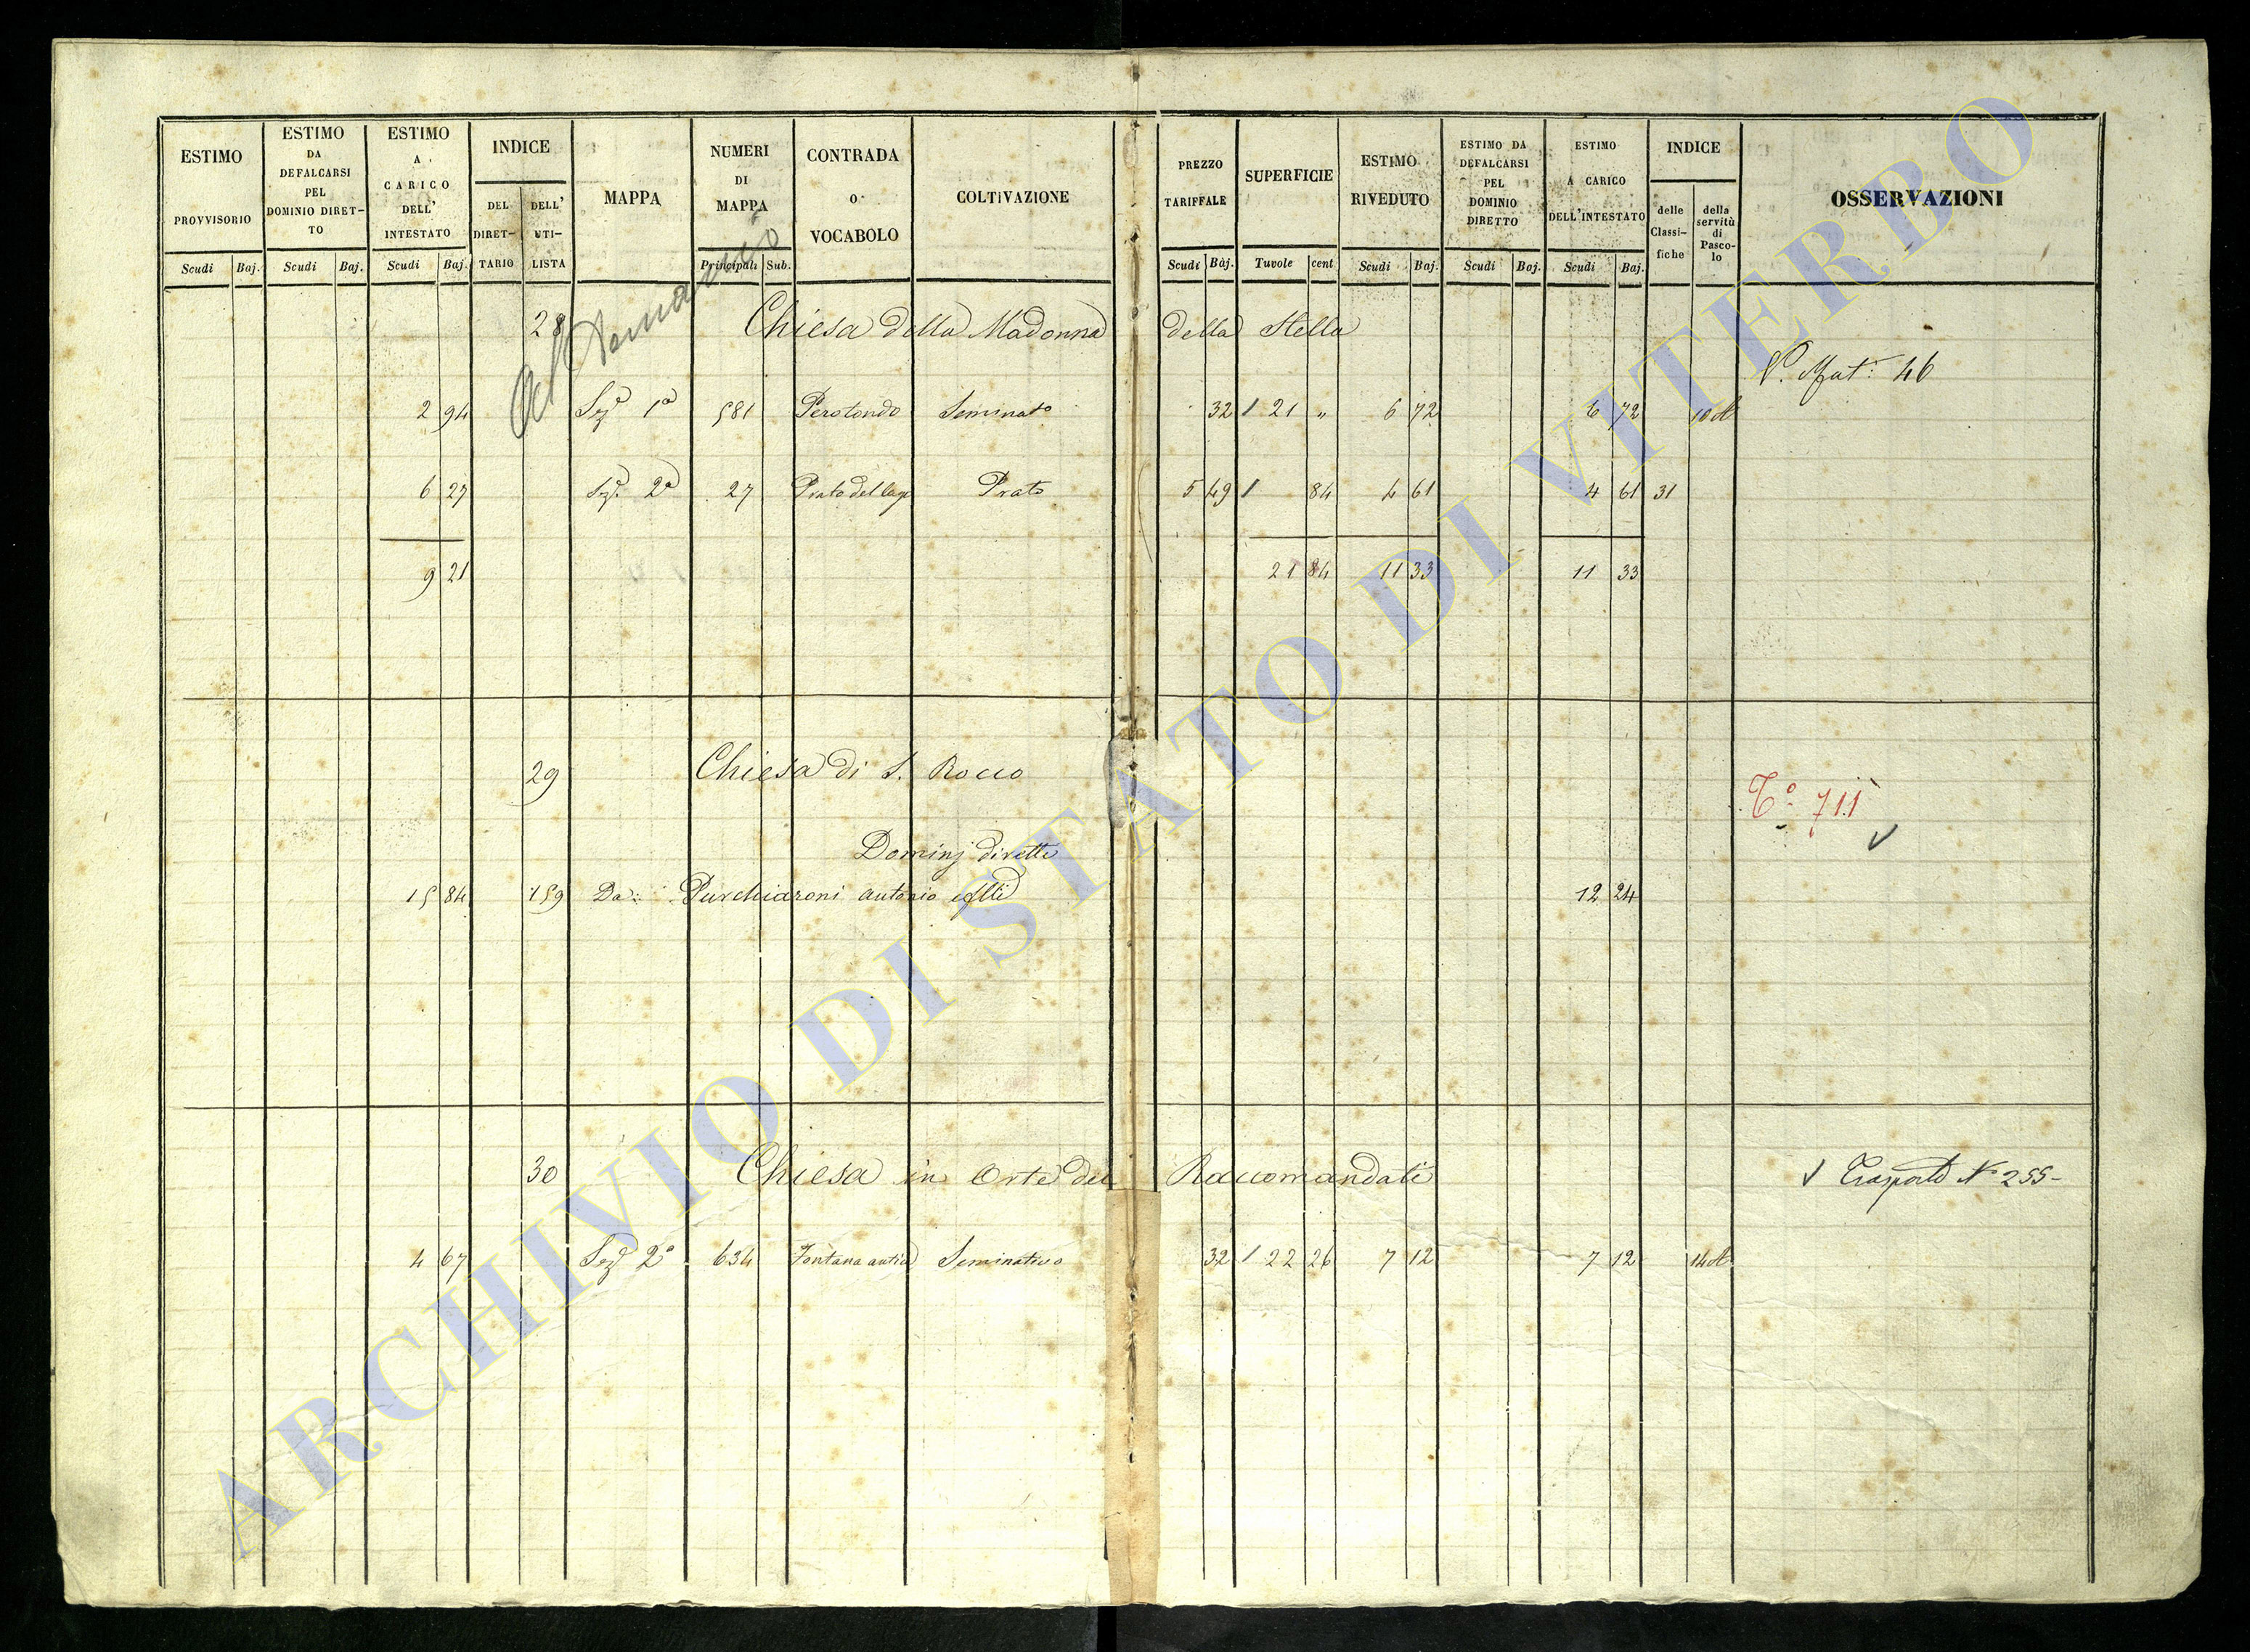 ESTIMO PROVVISORIO
ESTIMO DA DEFALCARSI PEL DOMINIO DIRET-TO
ESTIMO A CARICO DELL' INTESTATO
INDICE
DEL DIRET-TARIO
DELL' UTI-LISTA
MAPPA
NUMERI DI MAPPA
CONTRADA O VOCABOLO
COLTIVAZIONE
PREZZO TARIFFALE
SUPERFICIE
ESTIMO RIVEDUTO
ESTIMO DA DEFALCARSI PEL DOMINIO DIRETTO
ESTIMO A CARICO DELL'INTESTATO
INDICE
delle Classi-fiche
della servitù di Pasco-lo
OSSERVAZIONI
Scudi Baj. Scudi Baj. Scudi Baj. Principali Sub. Scudi Baj. Tavole cent Scudi Baj. Scudi Baj. Scudi Baj.
Al Demanio
28 Chiesa della Madonna della Stella
V. Mat: 46
2 94 Sezᵉ 1ª 581 Perotondo Seminato 32 1 21 „ 6 72 6 72 10 A
6 27 Sezᵉ 2ª 27 Prato Prato 5 49 1 84 4 61 4 61 31
9 21 21 84 11 33 11 33
29 Chiesa di S. Rocco
Tº 711
Dominj diretti
15 84 159 Da: Purchiaroni Antonio e flli 12 24
30 Chiesa in Orte dei Raccomandati
Trasporto Nº 255-
4 67 Sezᵉ 2ª 634 Fontana antica Seminativo 32 1 22 26 7 12 7 12 14 A
ARCHIVIO DI STATO DI VITERBO